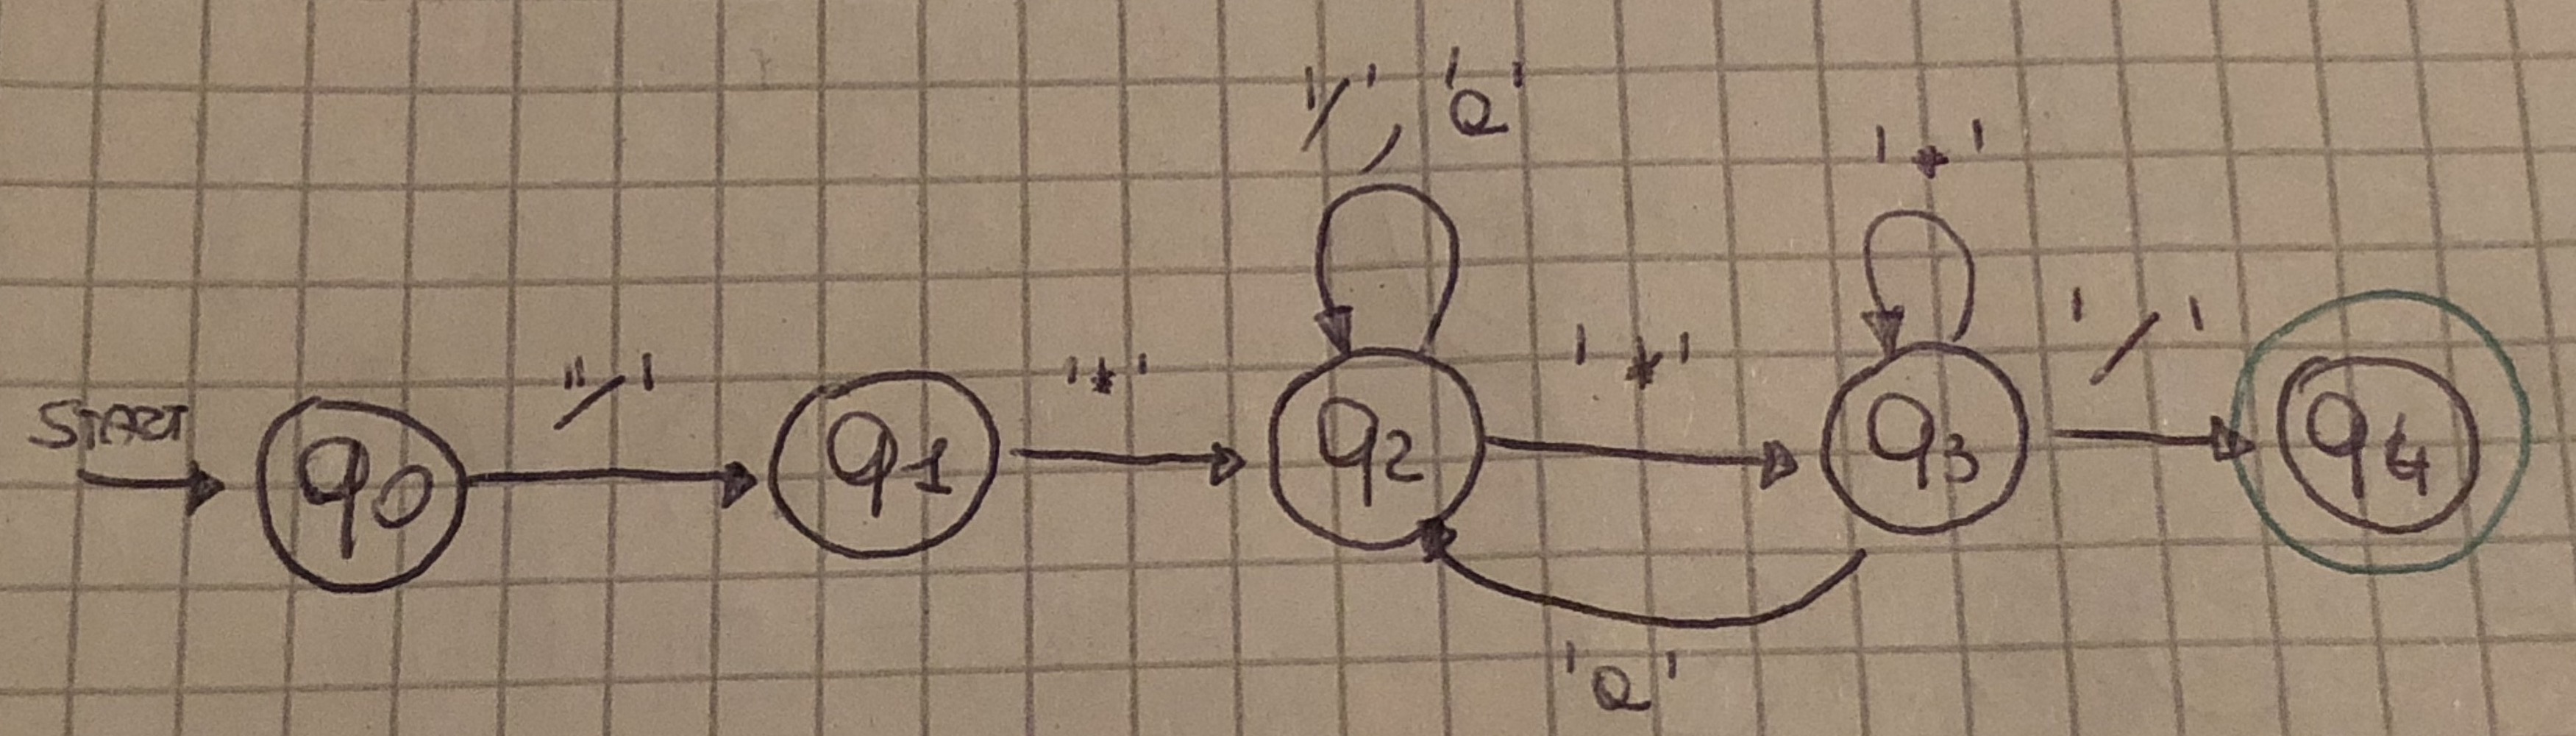 '/', 'a'
'*'
START
q0
"/'
q1
'*'
q2
'*'
q3
'/'
q4
'a'